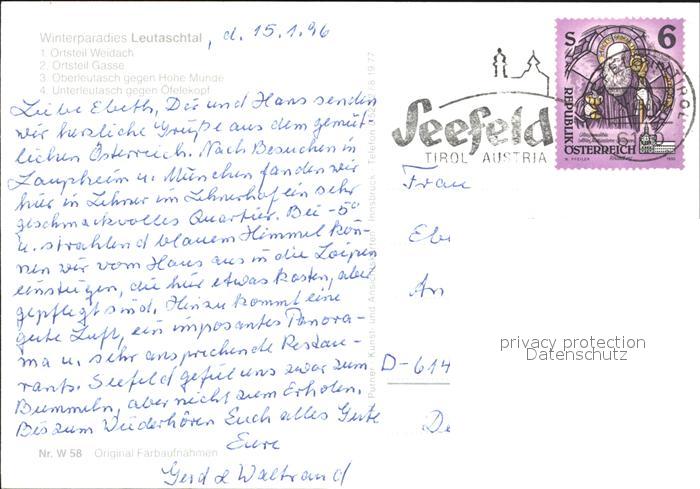 Winterparadies Leutaschtal
1. Ortsteil Weidach
2. Ortsteil Gasse
3. Oberleutasch gegen Hohe Munde
4. Unterleutasch gegen Öfelekopf
, d. 15.1.96
Liebe Ebeth, Dir und Hans senden
wir herzliche Grüße aus dem gemüt-
lichen Österreich. Nach Besuchen in
Laupheim u. München fanden wir
hier in Lehner im Lehnerhof ein sehr
geschmackvolles Quartier. Bei -5°
u. strahlend blauem Himmel kön-
nen wir vom Haus aus in die Loipen
einsteigen, die hier etwas kosten, aber
gepflegt sind. Hinzu kommt eine
gute Luft, ein imposantes Panora-
ma u. sehr ansprechende Restau-
rants. Seefeld gefiel uns zwar zum
Bummeln, aber nicht zum Erholen.
Bis zum Wiederhören Euch alles Gute
Eure
Gerd & Waltraud
Nr. W 58 Original Farbaufnahmen
Purner, Kunst- und Ansichtskarten, Innsbruck, Telefon
Seefeld
TIROL AUSTRIA
S 6
REPUBLIK
ÖSTERREICH
Frau
Ebe
An
D-614
De
privacy protection
Datenschutz